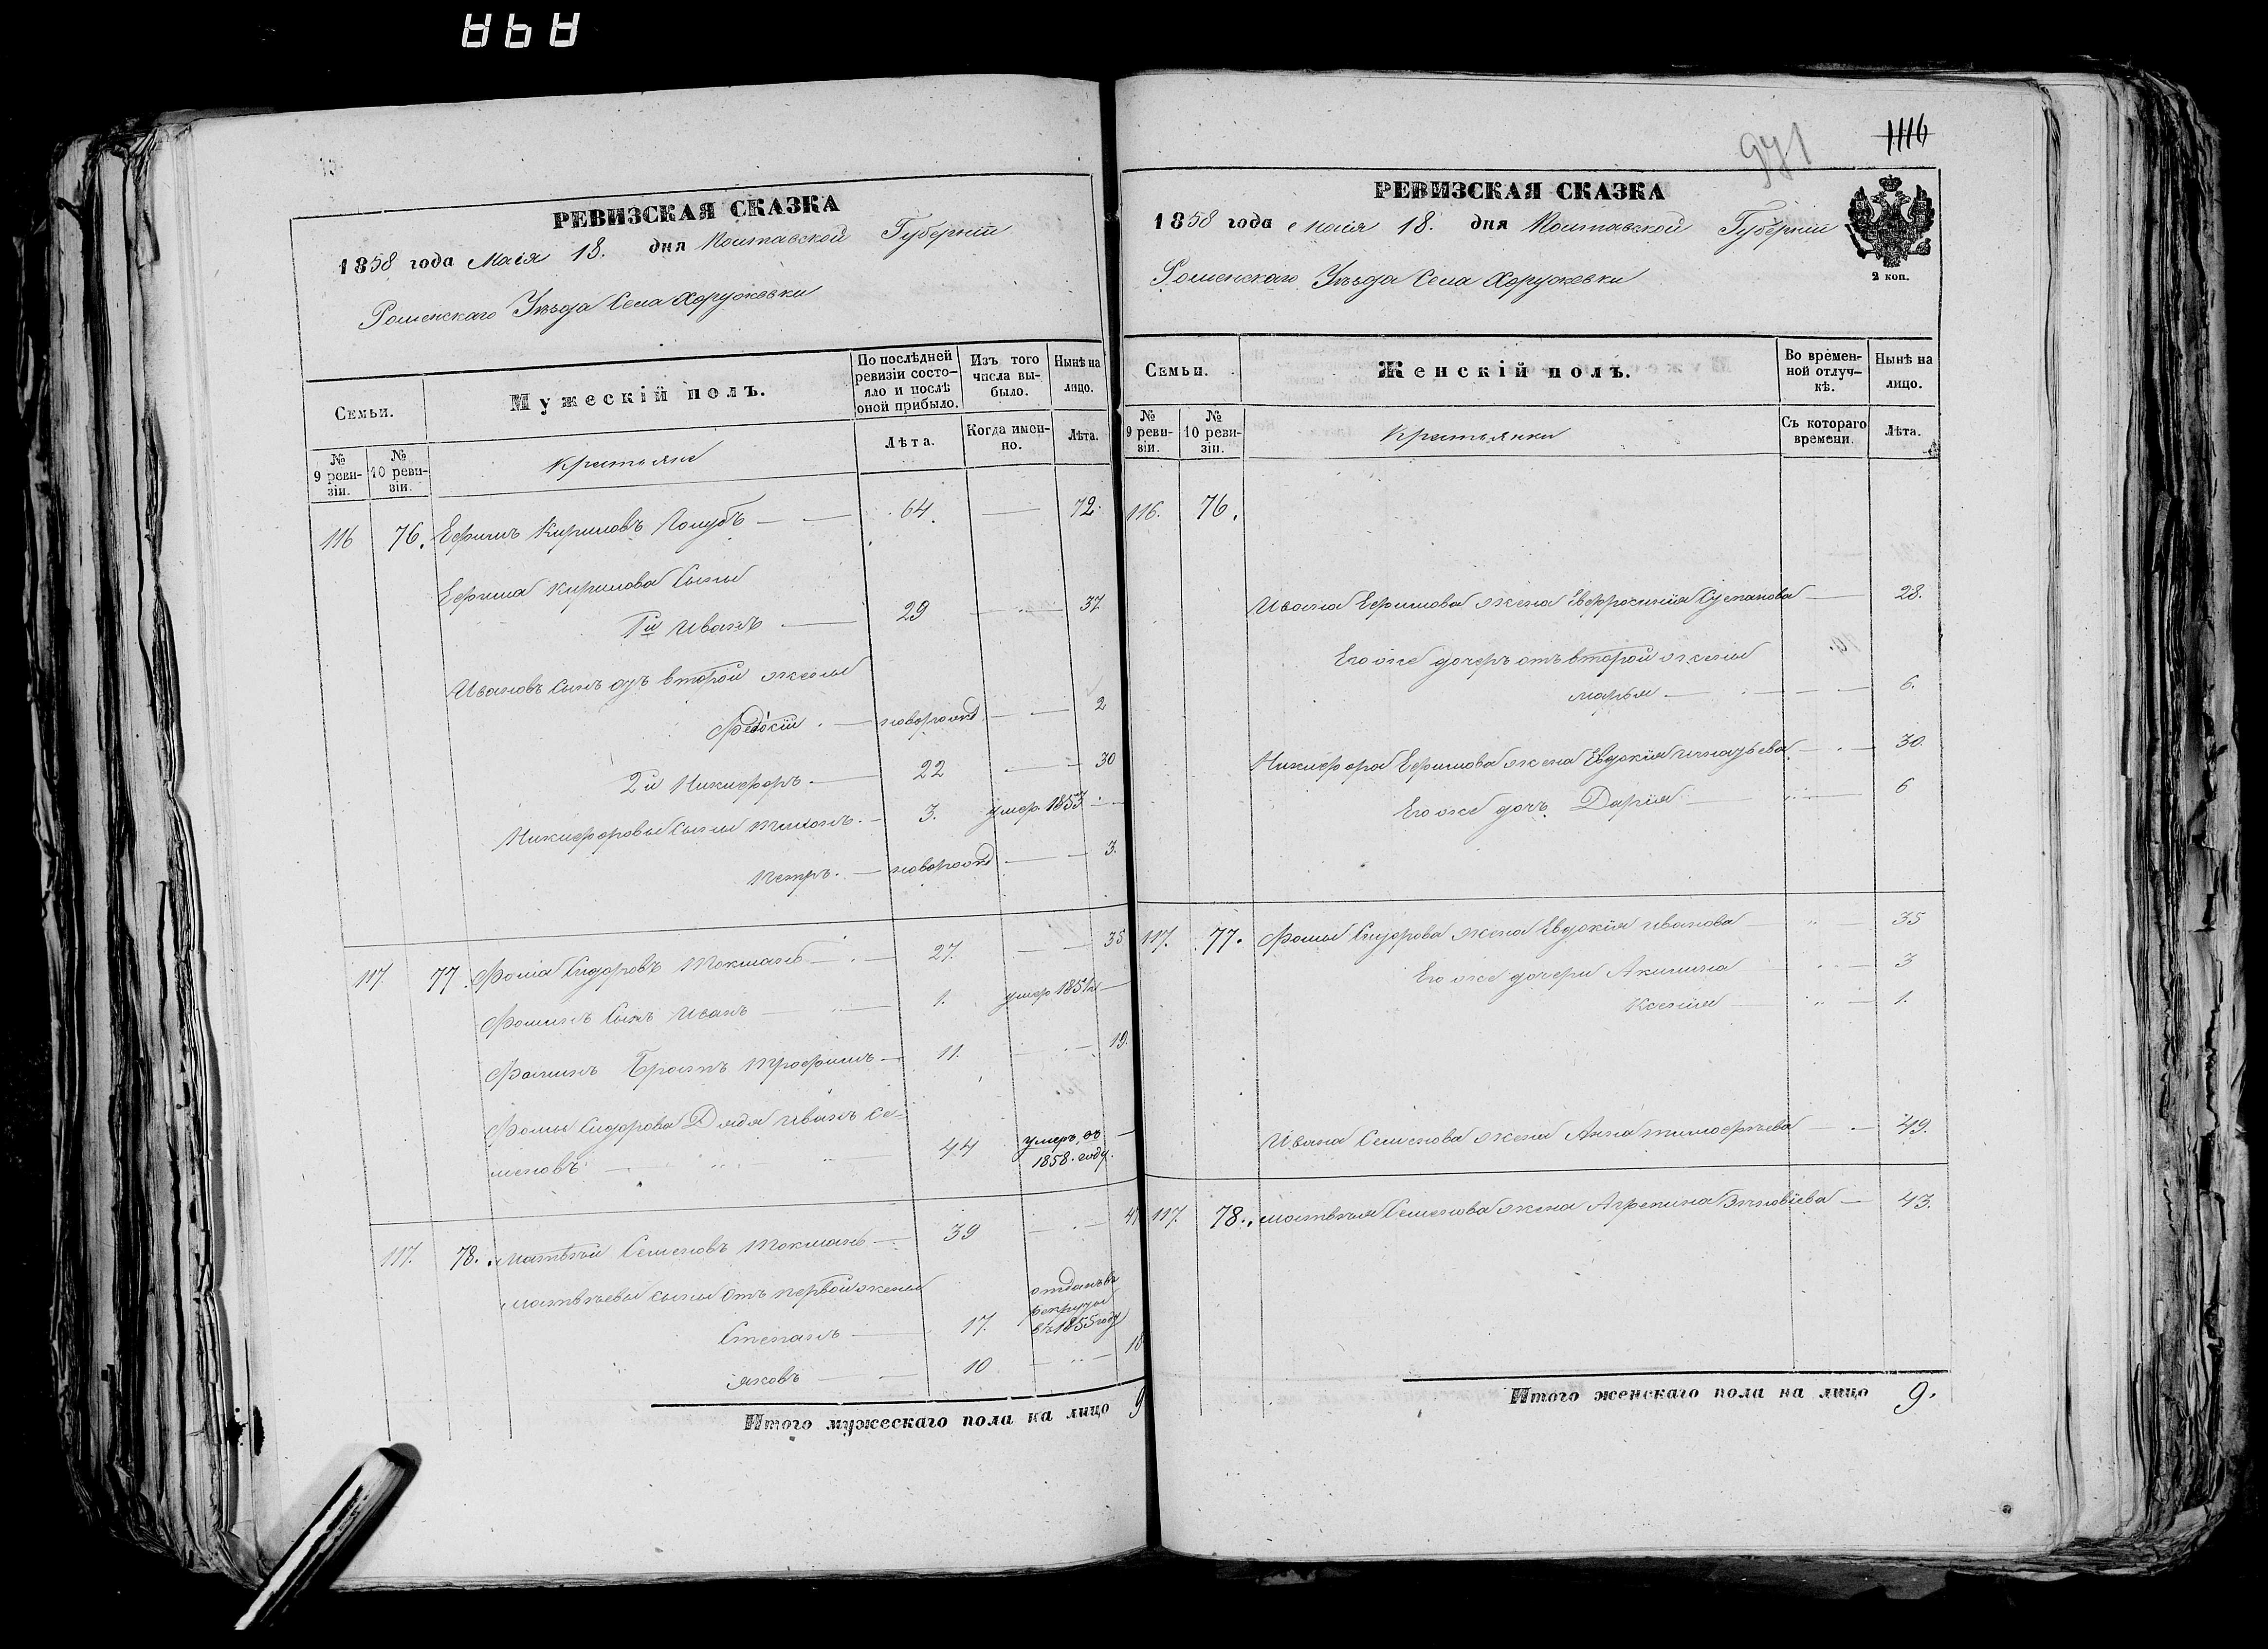 РЕВИЗСКАЯ СКАЗКА
1858 года Маія 18. дня Полтавской Губерніи
Роменскаго Уѣзда Села Хоружевки
Семьи.
Мужескій полъ.
По послѣдней ревизіи состояло и послѣ оной прибыло.
Изъ того числа выбыло.
Нынѣ на лицо.
№ 9 ревизіи.
№ 10 ревизіи.
Крестьяне
Лѣта.
Когда именно.
Лѣта.
116 76. Ефимъ Кириловъ Голубъ 64. 72.
Ефима Кирилова Сыны
1й Иванъ 29 37.
Ивановъ Сынъ отъ второй жены
новорожд 2
2й Никифоръ 22 30
Никифоровы Сыны 3. умер. 1853
Петръ. новорожд 3.
117. 77. Фома Сидоровъ Токманъ 27. 35
Фоминъ Сынъ Иванъ 1. умер. 1851
Фоминъ Братъ Трофимъ 11. 19.
Фомы Сидорова Дядя Иванъ Се-
меновъ 44 умеръ въ 1858. году.
117. 78. Матвѣй Семеновъ Токманъ 39 47
Матвѣевы сыны отъ первой жены
Степанъ 17. отданъ в рекруты въ 1855 году
Яковъ 10 18
Итого мужескаго пола на лицо 9
971
1116
РЕВИЗСКАЯ СКАЗКА
1858 года Маія 18. дня Полтавской Губерніи
2 коп.
Роменскаго Уѣзда Села Хоружевки
Семьи.
Женскій полъ.
Во временной отлучкѣ.
Нынѣ на лицо.
№ 9 ревизіи.
№ 10 ревизіи.
Крестьянки
Съ котораго времени.
Лѣта.
116. 76.
Ивана Ефимова жена Евфросинія Степанова 28.
Его же дочерь отъ второй жены
Марья 6.
Никифора Ефимова жена Евдокія Игнатьева 30.
Его же дочь Дарія 6
117. 77. Фомы Сидорова жена Евдокія Иванова 35
Его же дочери Акилина 3
Ксенія 1.
Ивана Семенова жена Анна Тимофѣева 49.
117. 78. Матвѣя Семенова жена Агрепина Зѣновіева 43.
Итого женскаго пола на лицо 9.